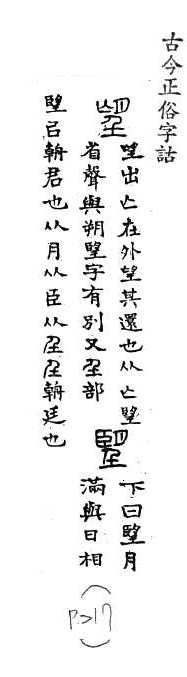 古今正俗字詁
望 望出亡在外望其還也从亡朢
省聲與朔朢字有別又𡈼部
朢 下曰朢月
滿與日相
朢㠯朝君也从月从臣从𡈼𡈼朝廷也
(P.217)